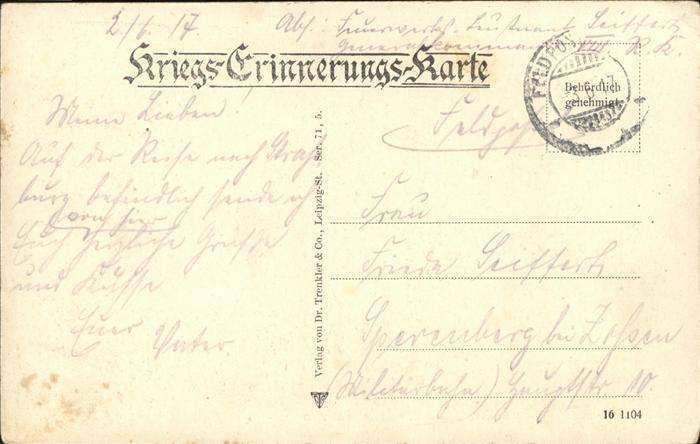 2/6. 17. Abs: Feuerwerks-Leutnant Seiffert
Generalkommando XVIII. R. K.
Kriegs-Erinnerungs-Karte
FELDPOST
Behördlich
genehmigt.
Meine Lieben!
Auf der Reise nach Straß-
burg befindlich sende ich
von hier
Euch herzliche Grüße
und Küsse
Euer
Vater
Verlag von Dr. Trenkler & Co., Leipzig-St. Ser. 71, 5.
Feldpost
Frau
Frieda Seiffert
Sperenberg bei Zossen
(Militärbahn) Hauptstr 10.
16 1104